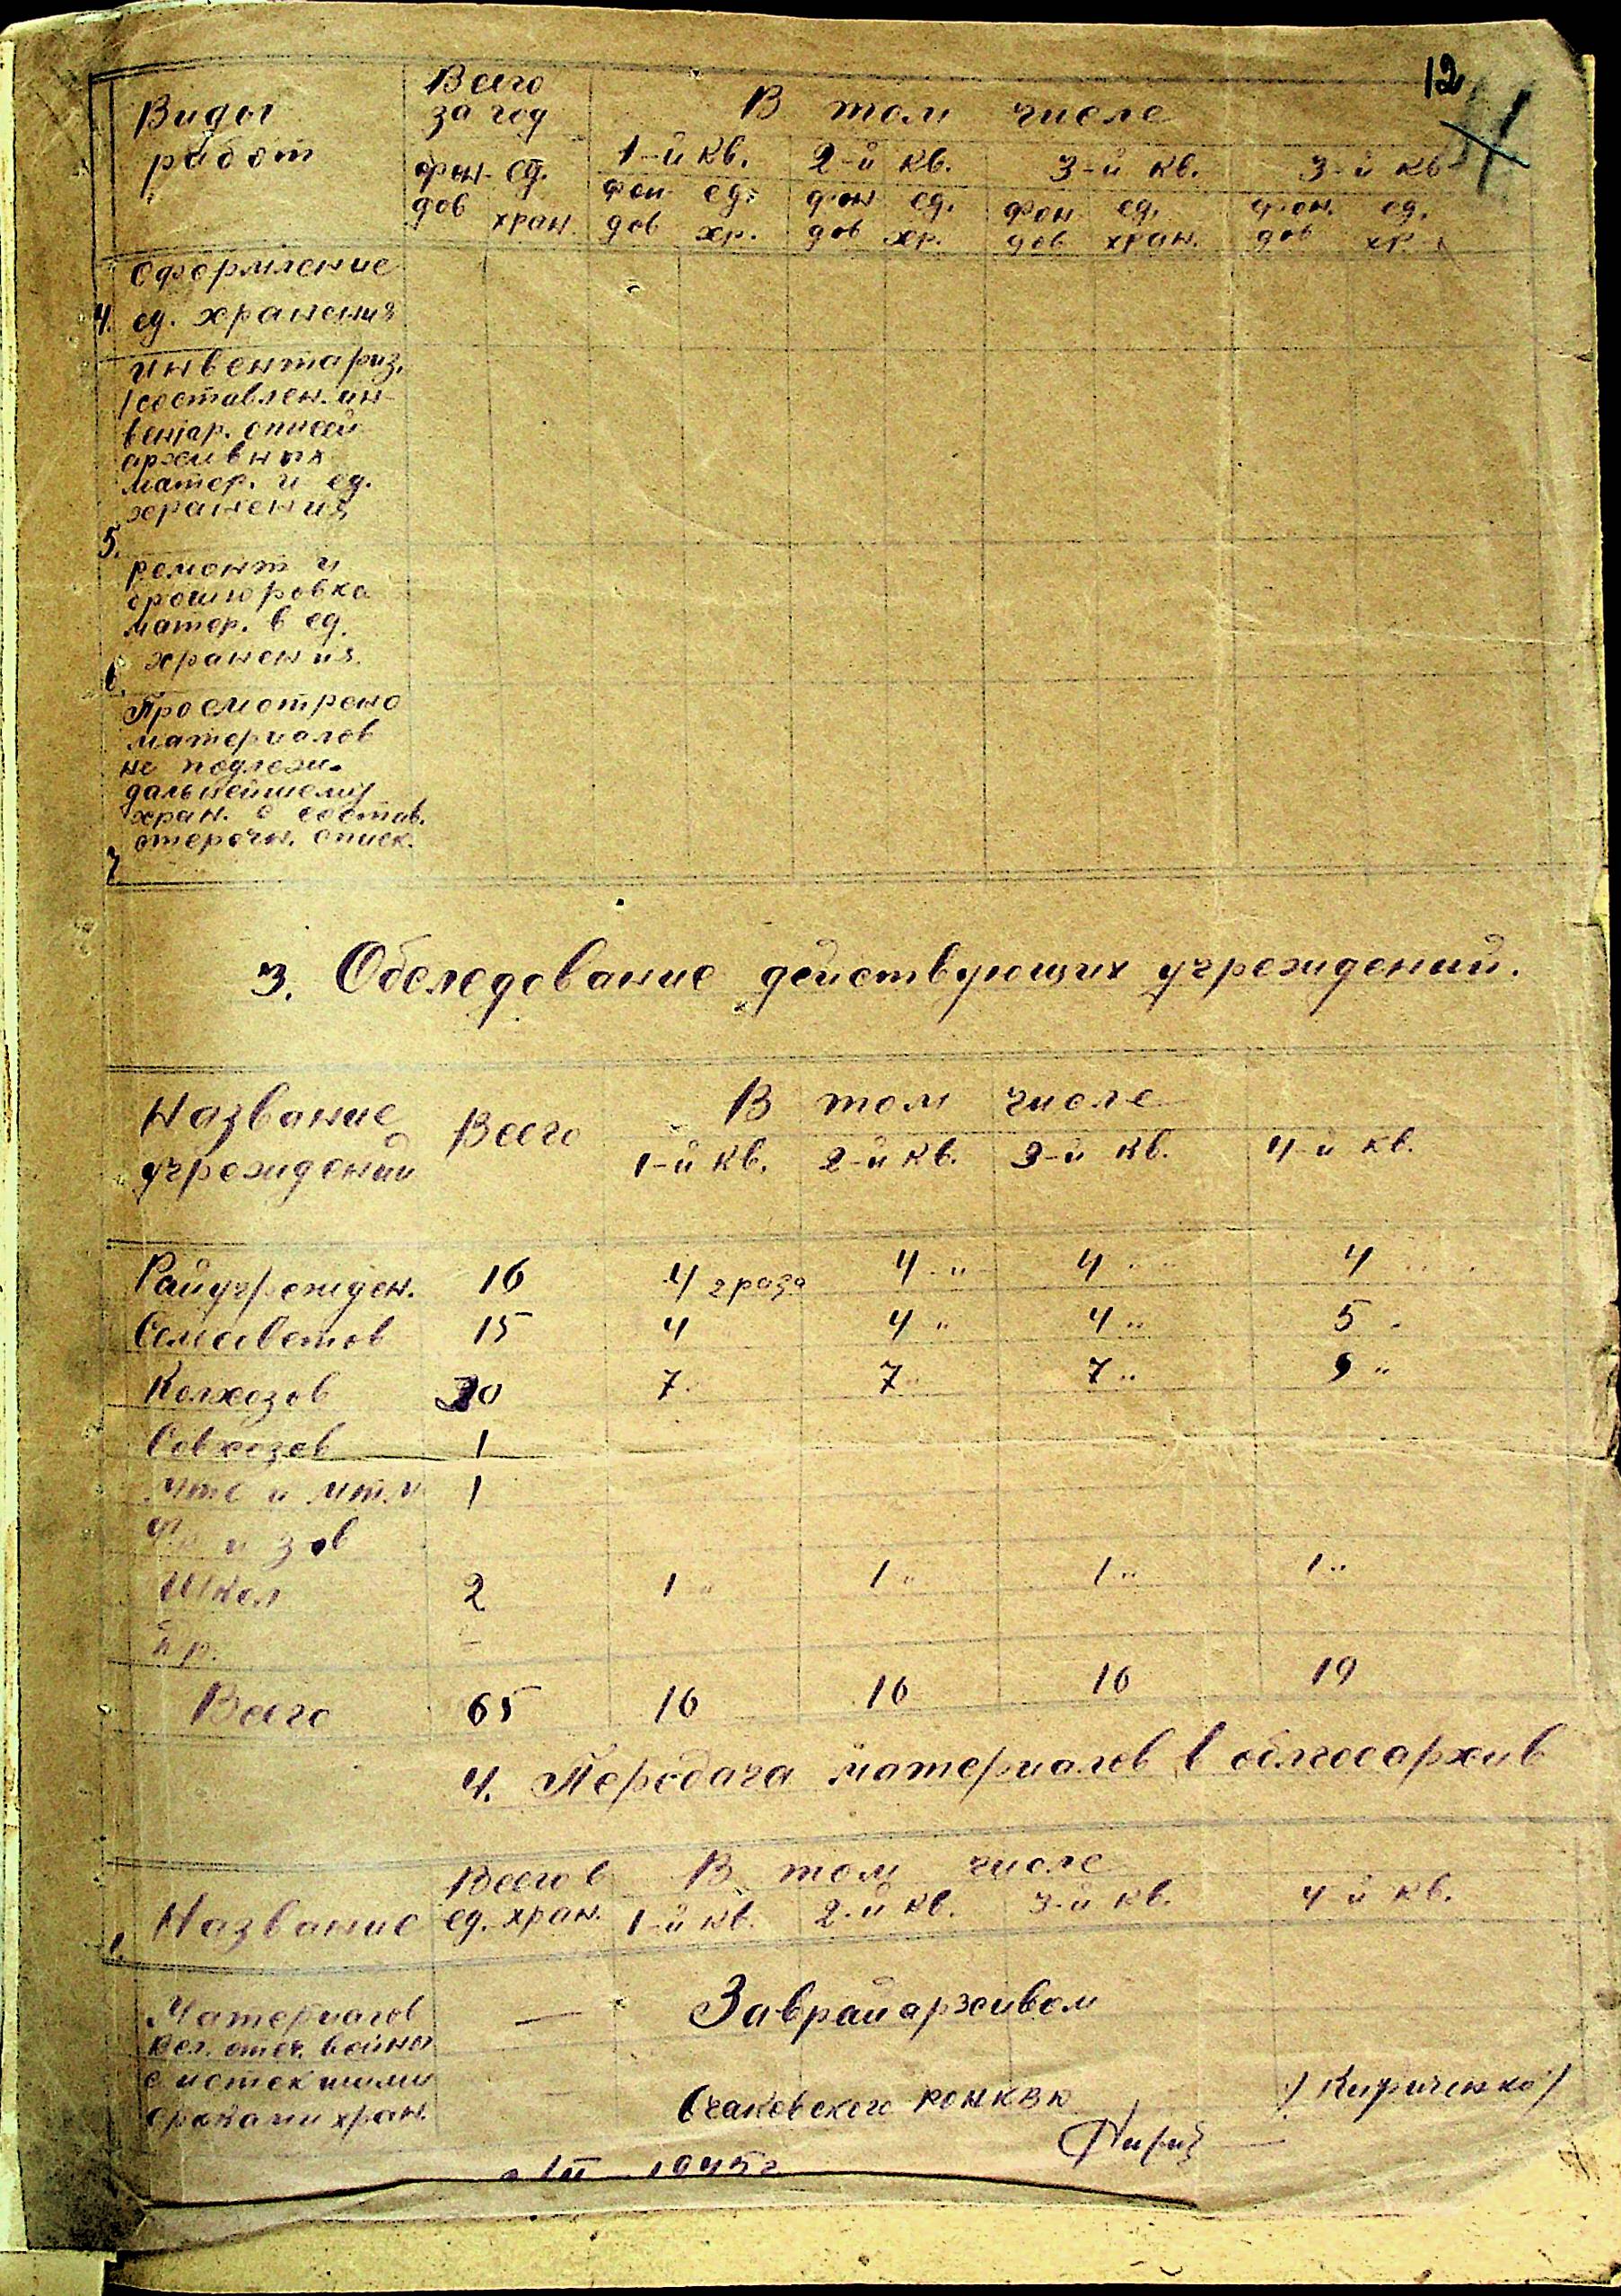 12
Виды работ
Всего за год
В том числе
1-й кв. 2-й кв. 3-й кв. 3-й кв
фон- ед. фон ед. фон ед. фон ед. фон. ед.
дов хран. дов хр. дов хр. дов хран. дов хр.
Оформление
4. ед. хранения
инвентариз.
/составлен. ин-
вентар. описей
архивных
матер. и ед.
хранения
5.
ремонт и
брошюровка
матер. в ед.
хранения.
6.
Просмотрено
материалов
не подлеж.
дальнейшему
хран. с состав.
описк.
7.
3. Обследование действующих учреждений.
Название учреждений
Всего
В том числе
1-й кв. 2-й кв. 3-й кв. 4-й кв.
Райучрежден. 16 4 4 " 4 " 4 "
Сельсоветов 15 4 4 " 4 " 5 "
Колхозов 30 7 " 7 " 7 " 9 "
Совхозов 1
Мтс и мтм 1
Школ 2 1 " 1 " 1 " 1 "
пр. -
Всего 65 16 16 16 19
4. Передача материалов в облгосархив
1. Название
Всего в ед. хран.
В том числе
1-й кв. 2-й кв. 3-й кв. 4-й кв.
Материалов —
вел. отеч. войны
с истекшими
сроками хран.
Заврайархивом
Очаковского РОНКВД
/Кириченко/
1945 г